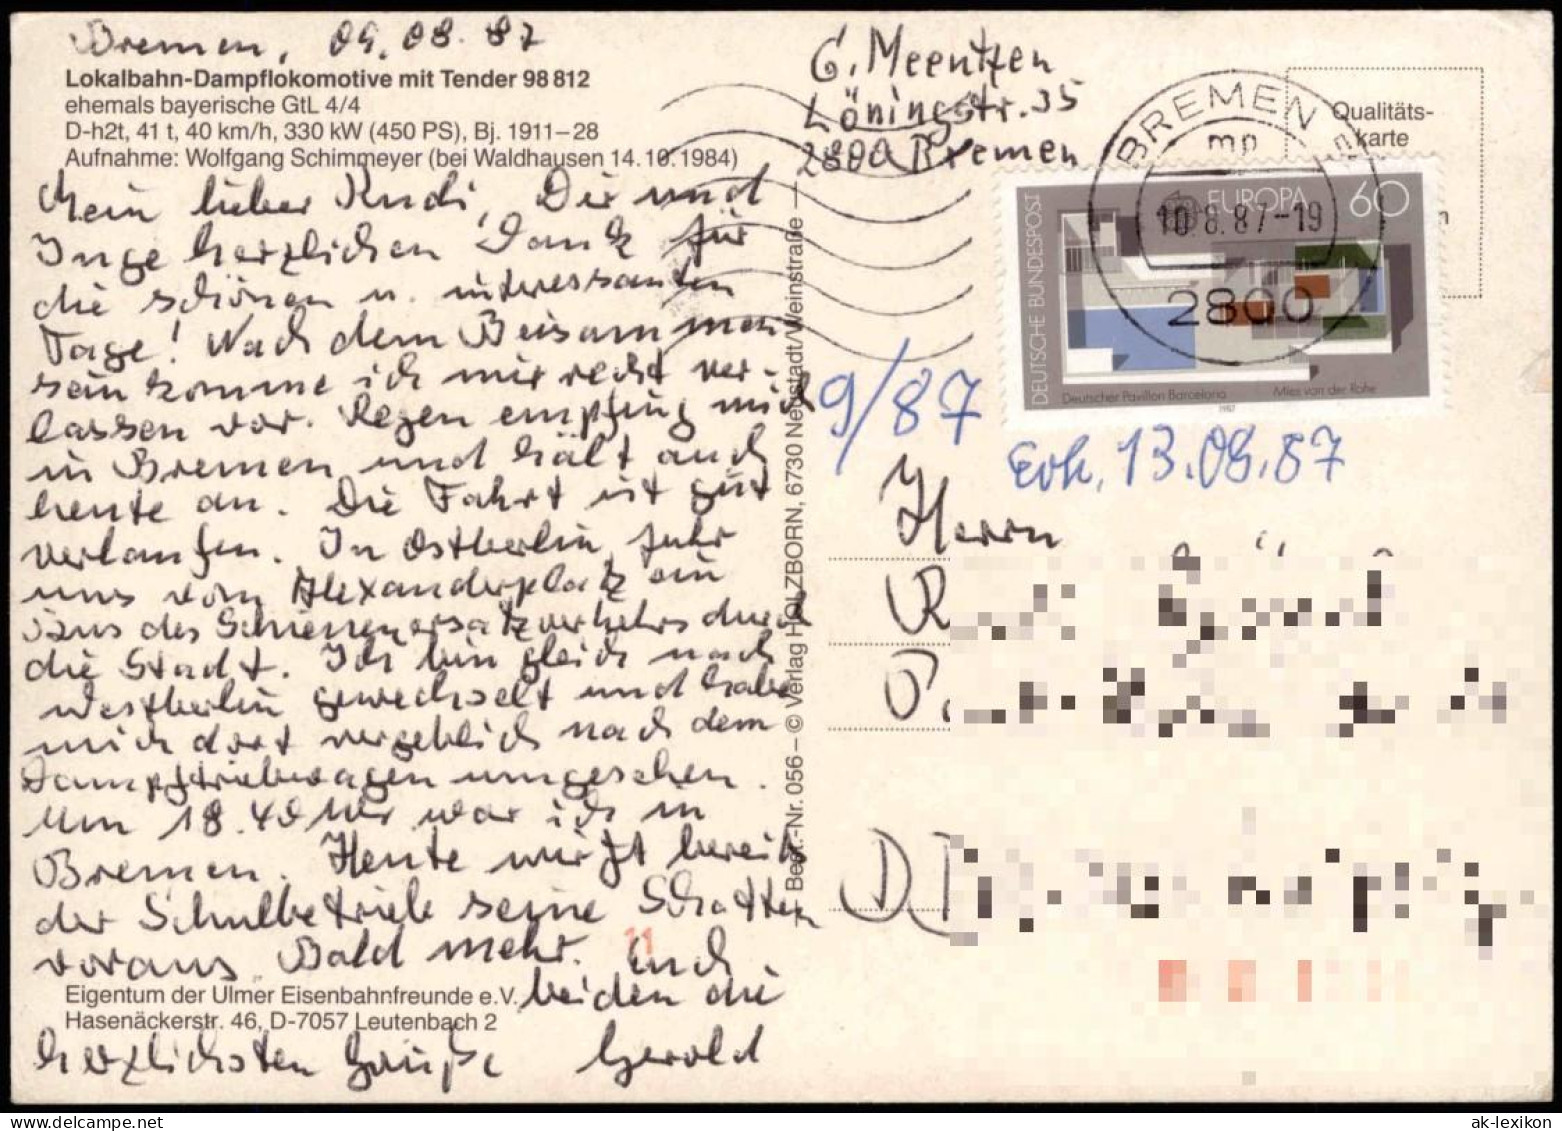 Bremen, 09.08.87
Lokalbahn-Dampflokomotive mit Tender 98 812
ehemals bayerische GtL 4/4
D-h2t, 41 t, 40 km/h, 330 kW (450 PS), Bj. 1911–28
Aufnahme: Wolfgang Schimmeyer (bei Waldhausen 14.10.1984)
Mein lieber Rudi, Dir und
Inge herzlichen Dank für
die schönen u. interessanten
Tage! Nach dem Beisammen
sein komme ich mir recht ver-
lassen vor. Regen empfing mich
in Bremen und hält auch
heute an. Die Fahrt ist gut
verlaufen. In Ostberlin fuhr
uns vom Alexanderplatz ein
Bus des Schienenersatzverkehrs durch
die Stadt. Ich bin gleich nach
Westberlin gewechselt und habe
mich dort vergeblich nach dem
Dampftriebwagen umgesehen.
Um 18.40 Uhr war ich in
Bremen. Heute wirft bereits
der Schulbetrieb seine Schatten
voraus. Bald mehr. Euch
beiden die
Eigentum der Ulmer Eisenbahnfreunde e.V.
Hasenäckerstr. 46, D-7057 Leutenbach 2
herzlichsten Grüße Gerold
11
Best.-Nr. 056 – © Verlag HOLZBORN, 6730 Neustadt/Weinstraße
G. Meentzen
Löningstr. 35
2800 Bremen
Qualitäts-
karte
BREMEN
mp
10.8.87-19
2800
DEUTSCHE BUNDESPOST
EUROPA
60
Deutscher Pavillon Barcelona
Mies van der Rohe
1987
9/87
Erh. 13.08.87
Herrn
R
D
ak-lexikon